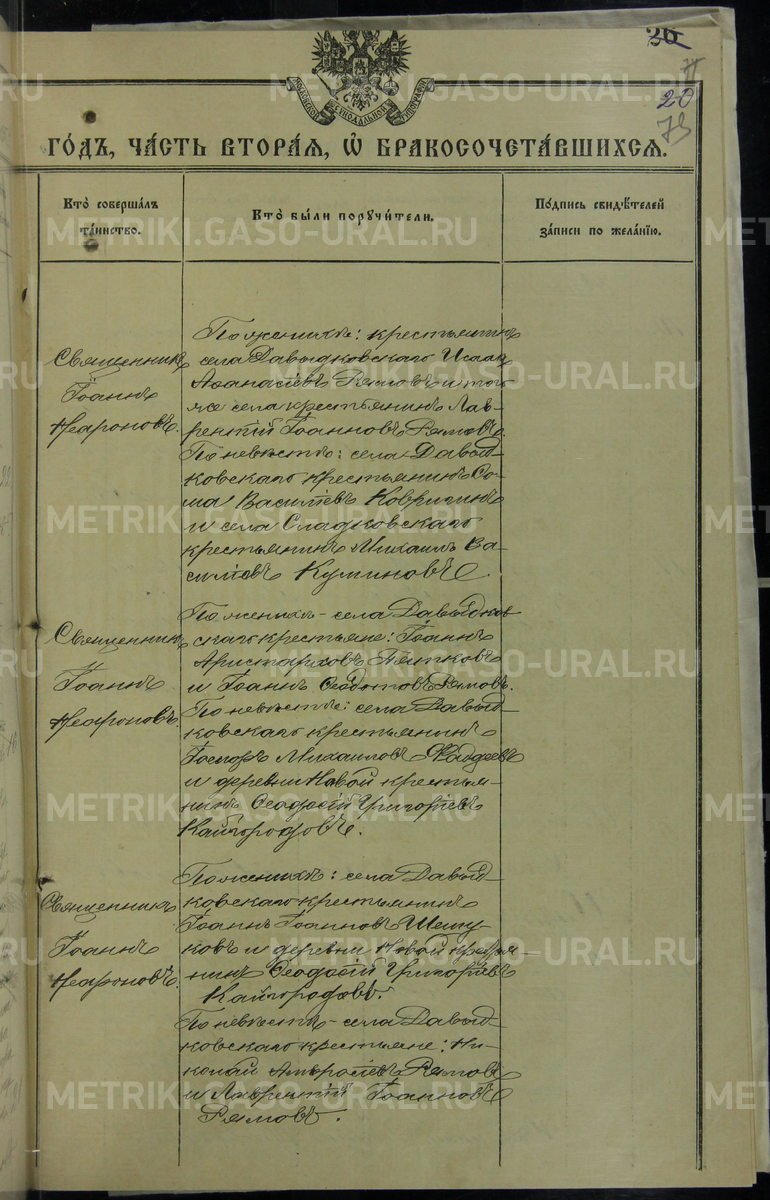 26
20
73
МОСКОВСКОЙ СѴНОДАЛЬНОЙ ТИПОГРАФІИ
METRIKI.GASO-URAL.RU
ГО́ДЪ, ЧА́СТЬ ВТОРА́Я, Ѡ БРАКОСОЧЕТА́ВШИХСЯ.
Кто̀ совершáлъ
та́инство.
Кто̀ бы́ли поручи́тели.
По́дпись свидѣ́телей
за́писи по жела́нїю.
Священникъ
Іоаннъ
Неароновъ.
По женихѣ: крестьянинъ
села Давыдковскаго Исаакъ
Аѳанасіевъ Рямовъ и того
же села крестьянинъ Лав-
рентій Іоанновъ Рямовъ.
По невѣстѣ: села Давыд-
ковскаго крестьянинъ Ѳо-
ма Василіевъ Ковригинъ
и села Сладковскаго
крестьянинъ Михаилъ Ва-
силіевъ Куминовъ.
Священникъ
Іоаннъ
Неароновъ.
По женихѣ - села Давыдков
скаго крестьяне: Іоаннъ
Аристарховъ Пятковъ
и Іоаннъ Ѳеодотовъ Рямовъ.
По невѣстѣ: села Давыд-
ковскаго крестьянинъ
Михаиловъ Фаддеевъ
и деревни Новой крестья-
нинъ Ѳеодосій Григоріевъ
Кайгородовъ.
Священникъ
Іоаннъ
Неароновъ.
По женихѣ: села Давыд-
ковскаго крестьянинъ
Іоаннъ Іоанновъ Шешу-
ковъ и деревни Новой крестья-
нинъ Ѳеодосій Григоріевъ
Кайгородовъ.
По невѣстѣ - села Давыд-
ковскаго крестьяне: Ни-
колай Амвросіевъ Рямовъ
и Лаврентій Іоанновъ
Рямовъ.